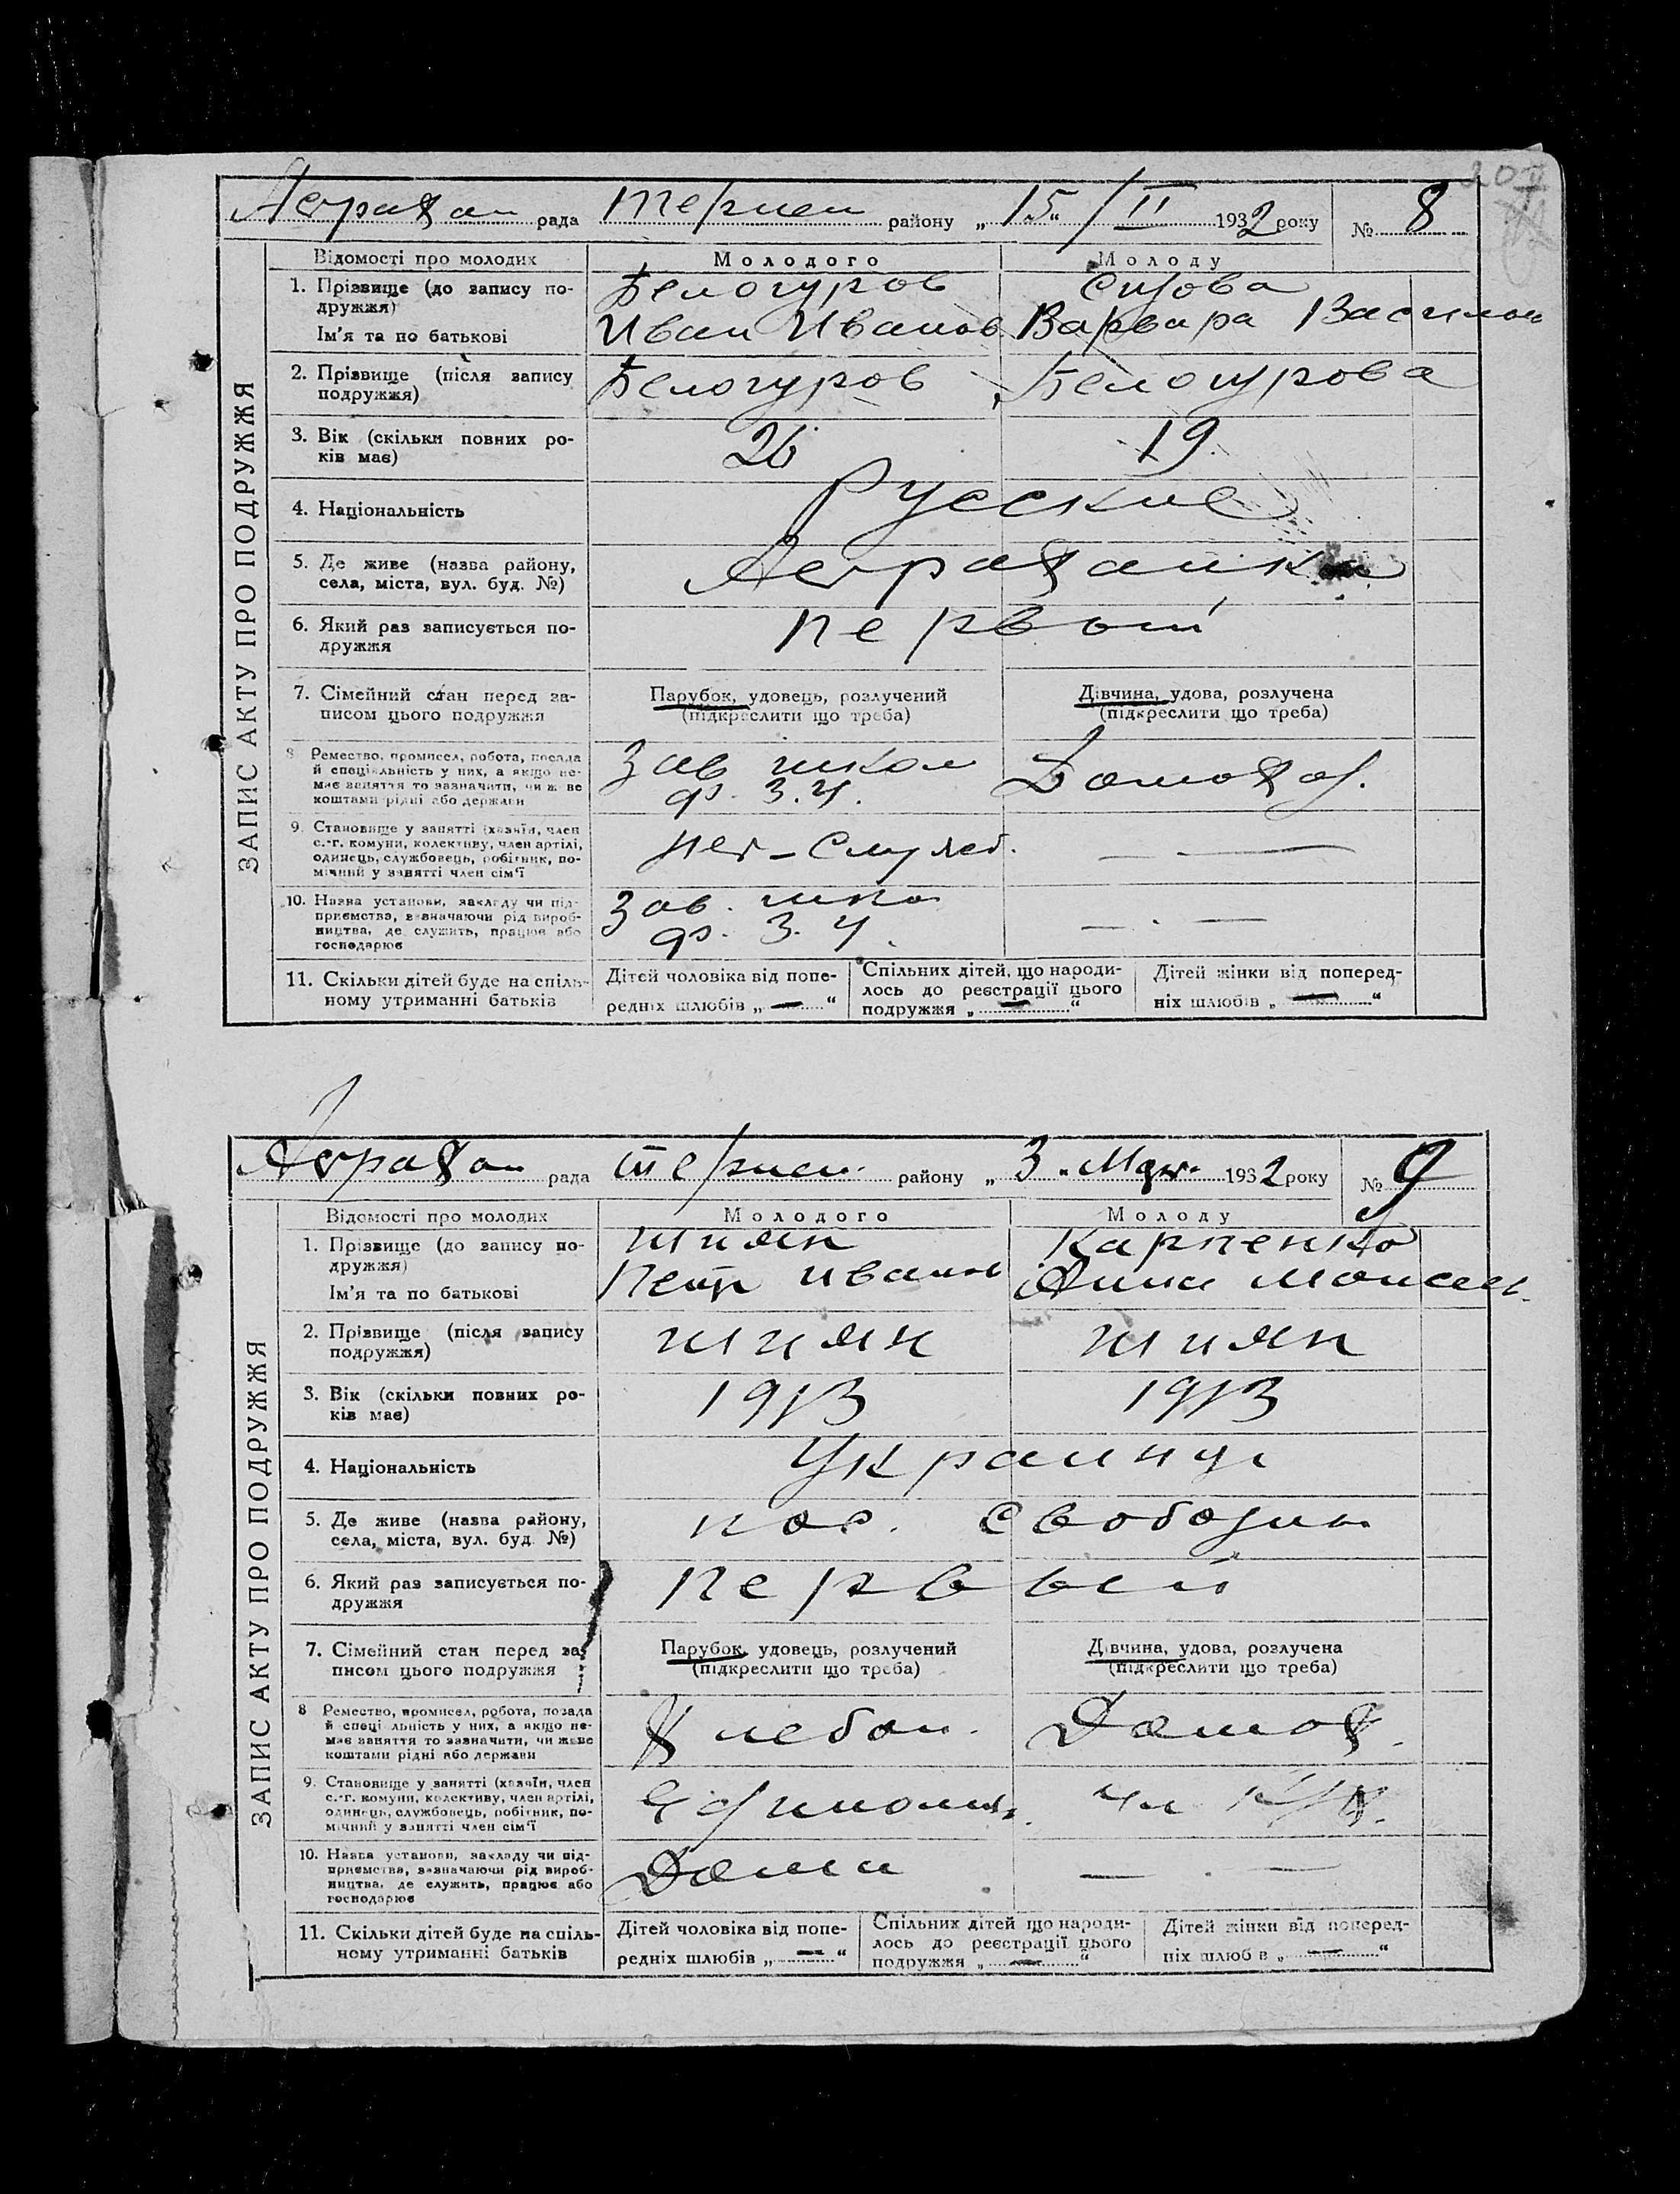 Астрахан рада Терпен району „ 15 “ / II 1932 року № 8
ЗАПИС АКТУ ПРО ПОДРУЖЖЯ
Відомості про молодих Молодого Молоду
1. Прізвище (до запису по- Белогуров
дружжя)
Ім'я та по батькові Иван Иванов Варвара Васильев
2. Прізвище (після запису Белогуров Белогурова
подружжя)
3. Вік (скільки повних ро- 26 19
ків має)
4. Національність Русские
5. Де живе (назва району, Астраханка
села, міста, вул. буд. №)
6. Який раз записується по- первый
дружжя
7. Сімейний стан перед за- Парубок, удовець, розлучений Дівчина, удова, розлучена
писом цього подружжя (підкреслити що треба) (підкреслити що треба)
8 Ремество, промисел, робота, посада Зав школ Домохоз.
й спеціальність у них, а якщо не-
має заняття то зазначити, чи живе
коштами рідні або держави
9. Становище у занятті (хазяїн, член служб.
с.-г. комуни, колективу, член артілі,
одинець, службовець, робітник, по-
мічний у занятті член сім'ї
10. Назва установи, закладу чи під- Зав. шко
приємства, зазначаючи рід вироб-
ництва, де служить, працює або
господарює
11. Скільки дітей буде на спіль- Дітей чоловіка від попе- Спільних дітей, що народи- Дітей жінки від поперед-
ному утриманні батьків редніх шлюбів „ — “ лось до реєстрації цього ніх шлюбів „ — “
подружжя „ — “
Астрахан рада Терпен району „ 3 “ Мар 1932 року № 9
ЗАПИС АКТУ ПРО ПОДРУЖЖЯ
Відомості про молодих Молодого Молоду
1. Прізвище (до запису по- Шиян Карпенко
дружжя)
Ім'я та по батькові Петр Иванов Анна Моисеев.
2. Прізвище (після запису Шиян Шиян
подружжя)
3. Вік (скільки повних ро- 1913 1913
ків має)
4. Національність Украинцы
5. Де живе (назва району, пос. Свободный
села, міста, вул. буд. №)
6. Який раз записується по- первый
дружжя
7. Сімейний стан перед за- Парубок, удовець, розлучений Дівчина, удова, розлучена
писом цього подружжя (підкреслити що треба) (підкреслити що треба)
8 Ремество, промисел, робота, посада Хлебоп. Домох.
й спеціальність у них, а якщо не-
має заняття то зазначити, чи живе
коштами рідні або держави
9. Становище у занятті (хазяїн, член Единолич. чл
с.-г. комуни, колективу, член артілі,
одинець, службовець, робітник, по-
мічний у занятті член сім'ї
10. Назва установи, закладу чи під- Дома
приємства, зазначаючи рід вироб-
ництва, де служить, працює або
господарює
11. Скільки дітей буде на спіль- Дітей чоловіка від попе- Спільних дітей що народи- Дітей жінки від поперед-
ному утриманні батьків редніх шлюбів „ — “ лось до реєстрації цього ніх шлюбів „ — “
подружжя „ — “